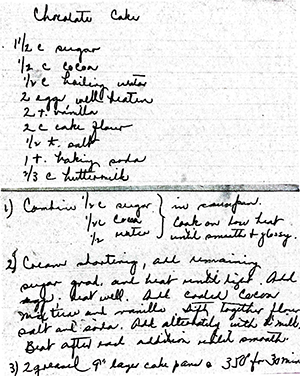 Chocolate Cake
1 1/2 c sugar
1/2 c cocoa
1/2 c boiling water
2 eggs, well beaten
2 t. vanilla
2 c cake flour
1/2 t. salt
1 t. baking soda
2/3 c buttermilk
1) Combine 1/2 c sugar } in saucepan.
1/2 c cocoa Cook on low heat
1/2 water until smooth & glossy.
2) Cream shortning, add remaining
sugar grad. and beat until light. Add
eggs, beat well. Add cooled cocoa
mixture and vanilla. Sift together flour
salt and soda. Add alternately with b. milk.
Beat after each addition until smooth
3) 2 greased 9" layer cake pans @ 350° for 30 min